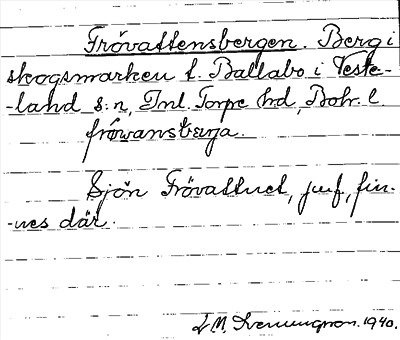 Frövattensbergen. Berg i
skogsmarken t. Ballabo i Veste-
-land s:n, Inl. Torpe hd, Boh. l.
frövansbærja.
Sjön Frövattnet, juf, fin-
-nes där.
1940.